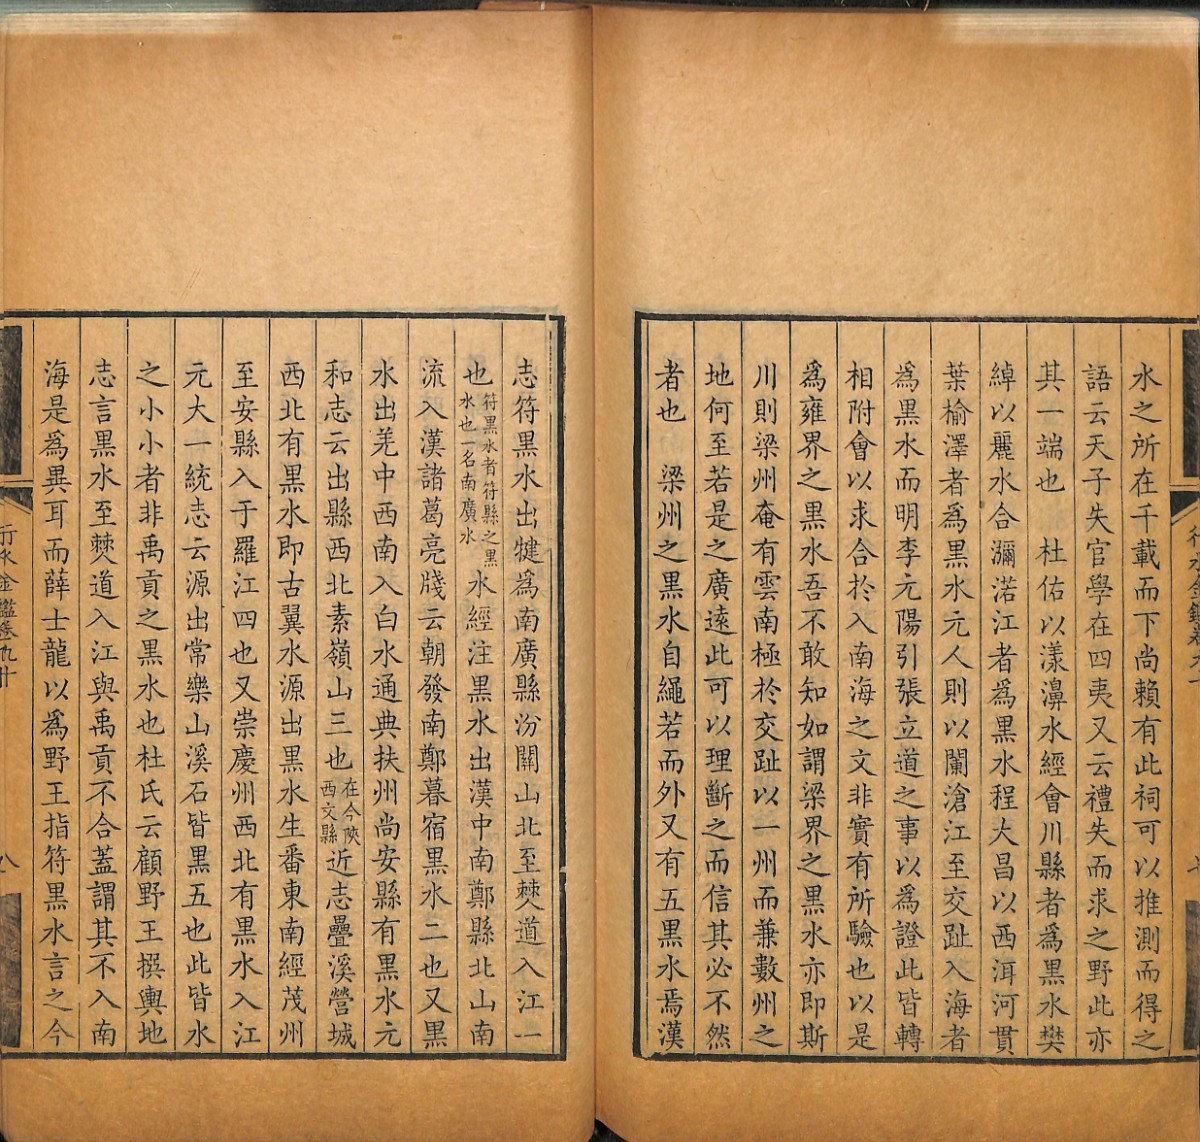 水之所在千載而下尚賴有此祠可以推測而得之
語云天子失官學在四夷又云禮失而求之野此亦
其一端也　杜佑以漾濞水經會川縣者為黑水樊
綽以麗水合瀰渃江者為黑水程大昌以西洱河貫
葉榆澤者為黑水元人則以闌滄江至交趾入海者
為黑水而明李元陽引張立道之事以為證此皆轉
相附會以求合於入南海之文非實有所驗也以是
為雍界之黑水吾不敢知如謂梁界之黑水亦即斯
川則梁州奄有雲南極於交趾以一州而兼數州之
地何至若是之廣遠此可以理斷之而信其必不然
者也　梁州之黑水自繩若而外又有五黑水焉漢
志符黑水出犍為南廣縣汾關山北至僰道入江一
也符黑水者符縣之黑水也一名南廣水水經注黑水出漢中南鄭縣北山南
流入漢諸葛亮牋云朝發南鄭暮宿黑水二也又黑
水出羌中西南入白水通典扶州尚安縣有黑水元
和志云出縣西北素嶺山三也在今陝西文縣近志疊溪營城
西北有黑水即古翼水源出黑水生番東南經茂州
至安縣入于羅江四也又崇慶州西北有黑水入江
元大一統志云源出常樂山溪石皆黑五也此皆水
之小小者非禹貢之黑水也杜氏云顧野王撰輿地
志言黑水至僰道入江與禹貢不合蓋謂其不入南
海是為異耳而薛士龍以為野王指符黑水言之今
行水金鑑卷九十
八